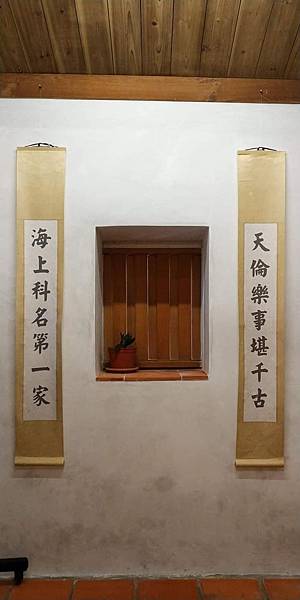 天倫樂事堪千古
海上科名第一家